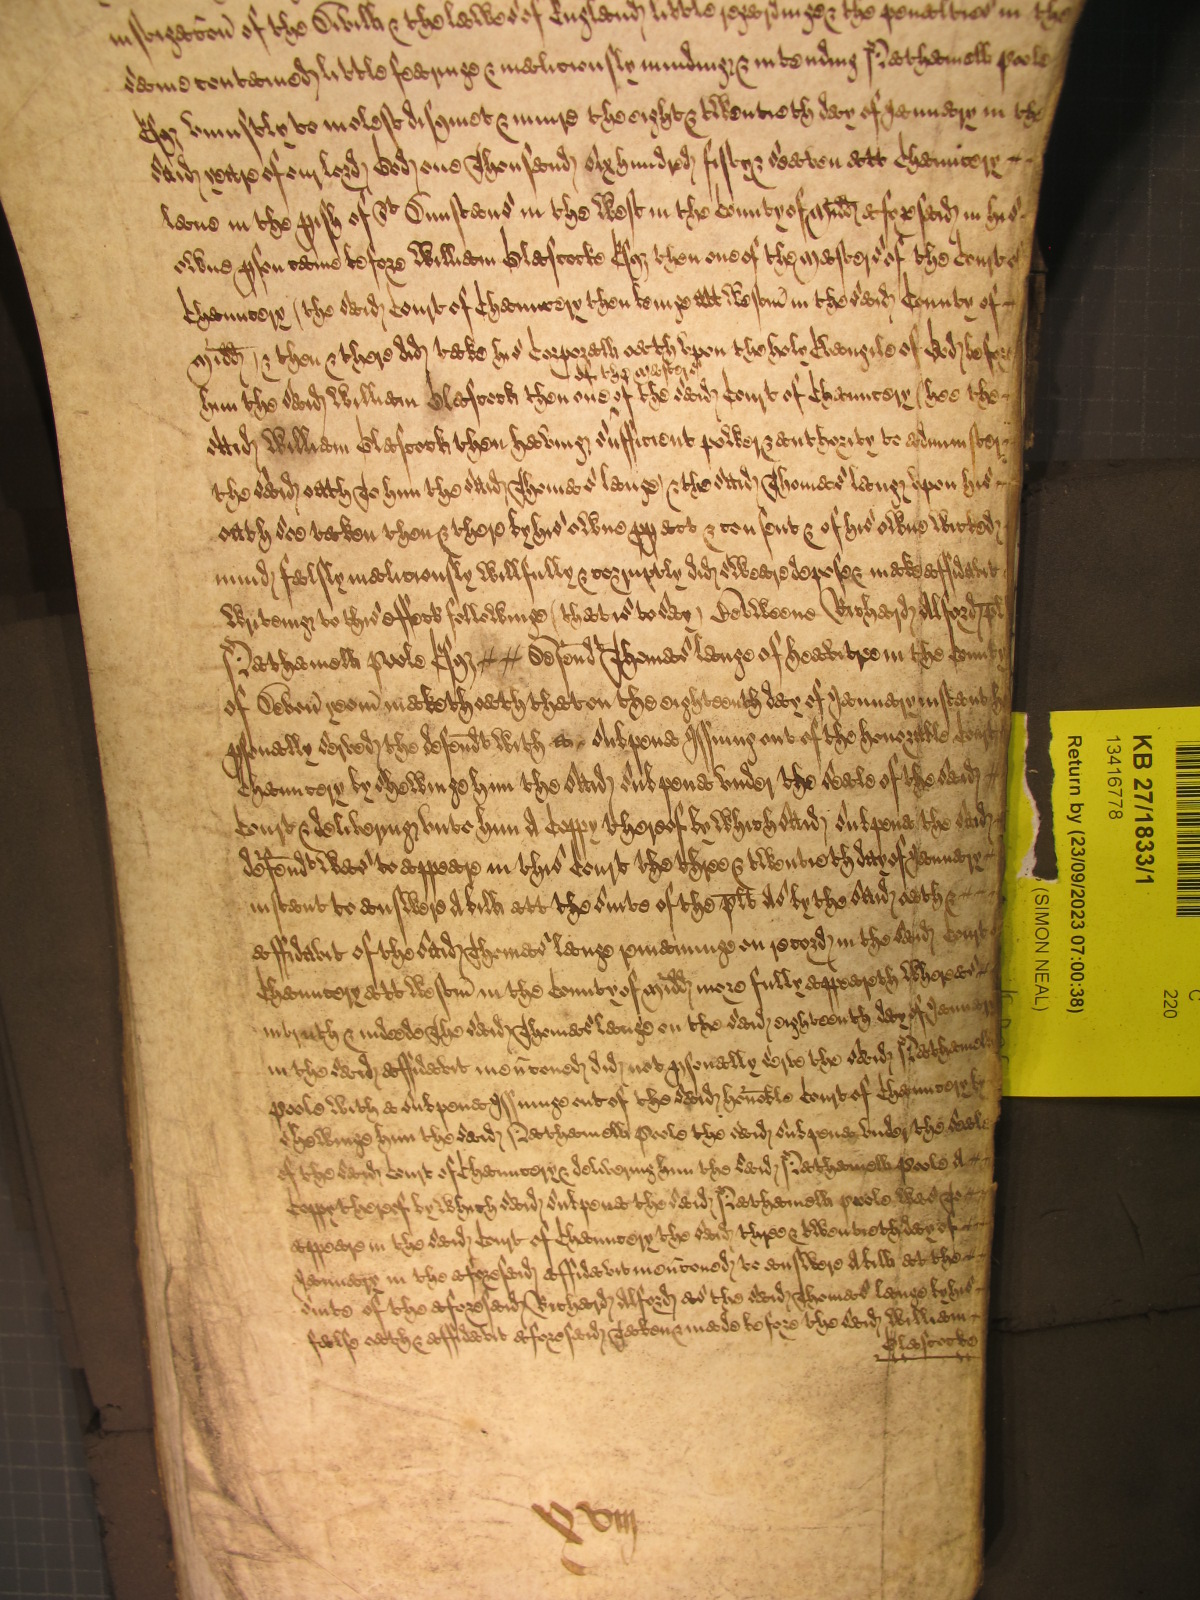 instigacōn of the Divill & the lawes of England little regardinge & the penalties in the
same contained little fearinge & malitiously mindinge & intending Nathaniell Poole
Esqz uniustly to molest disquiet & iniure the eight & twentieth day of January in the
said yeare of our Lord God one Thousand six hundred fifty & seaven att Chancery
lane in the pish of St Dunstans in the West in the County of Midd aforesaid in his
owne pson came before William Glascocke Esqz then one of the Masters of the Court of
Chauncery (the said Court of Chauncery then being att Westm in the said County of
Midd) & then & there did take his Corporall oath upon the holy Evangile of God before
of the masters
him the said William Glascock then one of the said Court of Chauncery (hee the
said William Glascock then having sufficient power & authority to administer
the said oath To him the said Thomas Lange) & the said Thomas Lang upon his
oath soe taken then & there by his owne pp act & consent & of his owne wicked
mind falsly malitiously willfully & corruptly did sweare depose & make affidavit
writeing to this effect followinge (that is to say) Betweene Richard Alford pl
Nathaniell Poole Esqz Defend Thomas Lange of Heavitree in the County
of Devon yeom maketh oath that on the eighteenth day of January instant h
psonally served the defendt with a subpena Issuing out of the honorable Court
Chauncery by shewinge him the said subpena under the seale of the said
Court & delivering unto him A Coppy thereof by which said subpena the said
defendt was to appeare in this Court the three & twentieth day of January
instant to answere A bill att the suite of the plt As by the said oath &
affidavit of the said Thomas Lange remaininge on record in the said Court of
Chauncery att Westm in the County of Midd more fully appeareth Whereas
in truth & indeede The said Thomas Lange on the said eighteenth day of January
in the said affidavit mencōned did not psonally serve the said Nathaniell
Poole with a subpena Issuinge out of the said honoble Court of Chauncery by
shewinge him the said Nathaniell Poole the said subpena under the seale
of the said Court of Chauncery & delivering him the said Nathaniell Poole A
Coppy thereof by which said subpena the said Nathaniell Poole was To
appeare in the said Court of Chauncery the said three & twentieth day of
January in the aforesaid affidavit mencōned to answere A bill at the
suite of the aforesaid Richard Alford as the said Thomas Lange by his
false oath & affidavit aforesaid Taken & made before the said William
Glascocke
xviij
KB 27/1833/1
13416778
Return by (23/09/2023 07:00:38)
(SIMON NEAL)
C
220